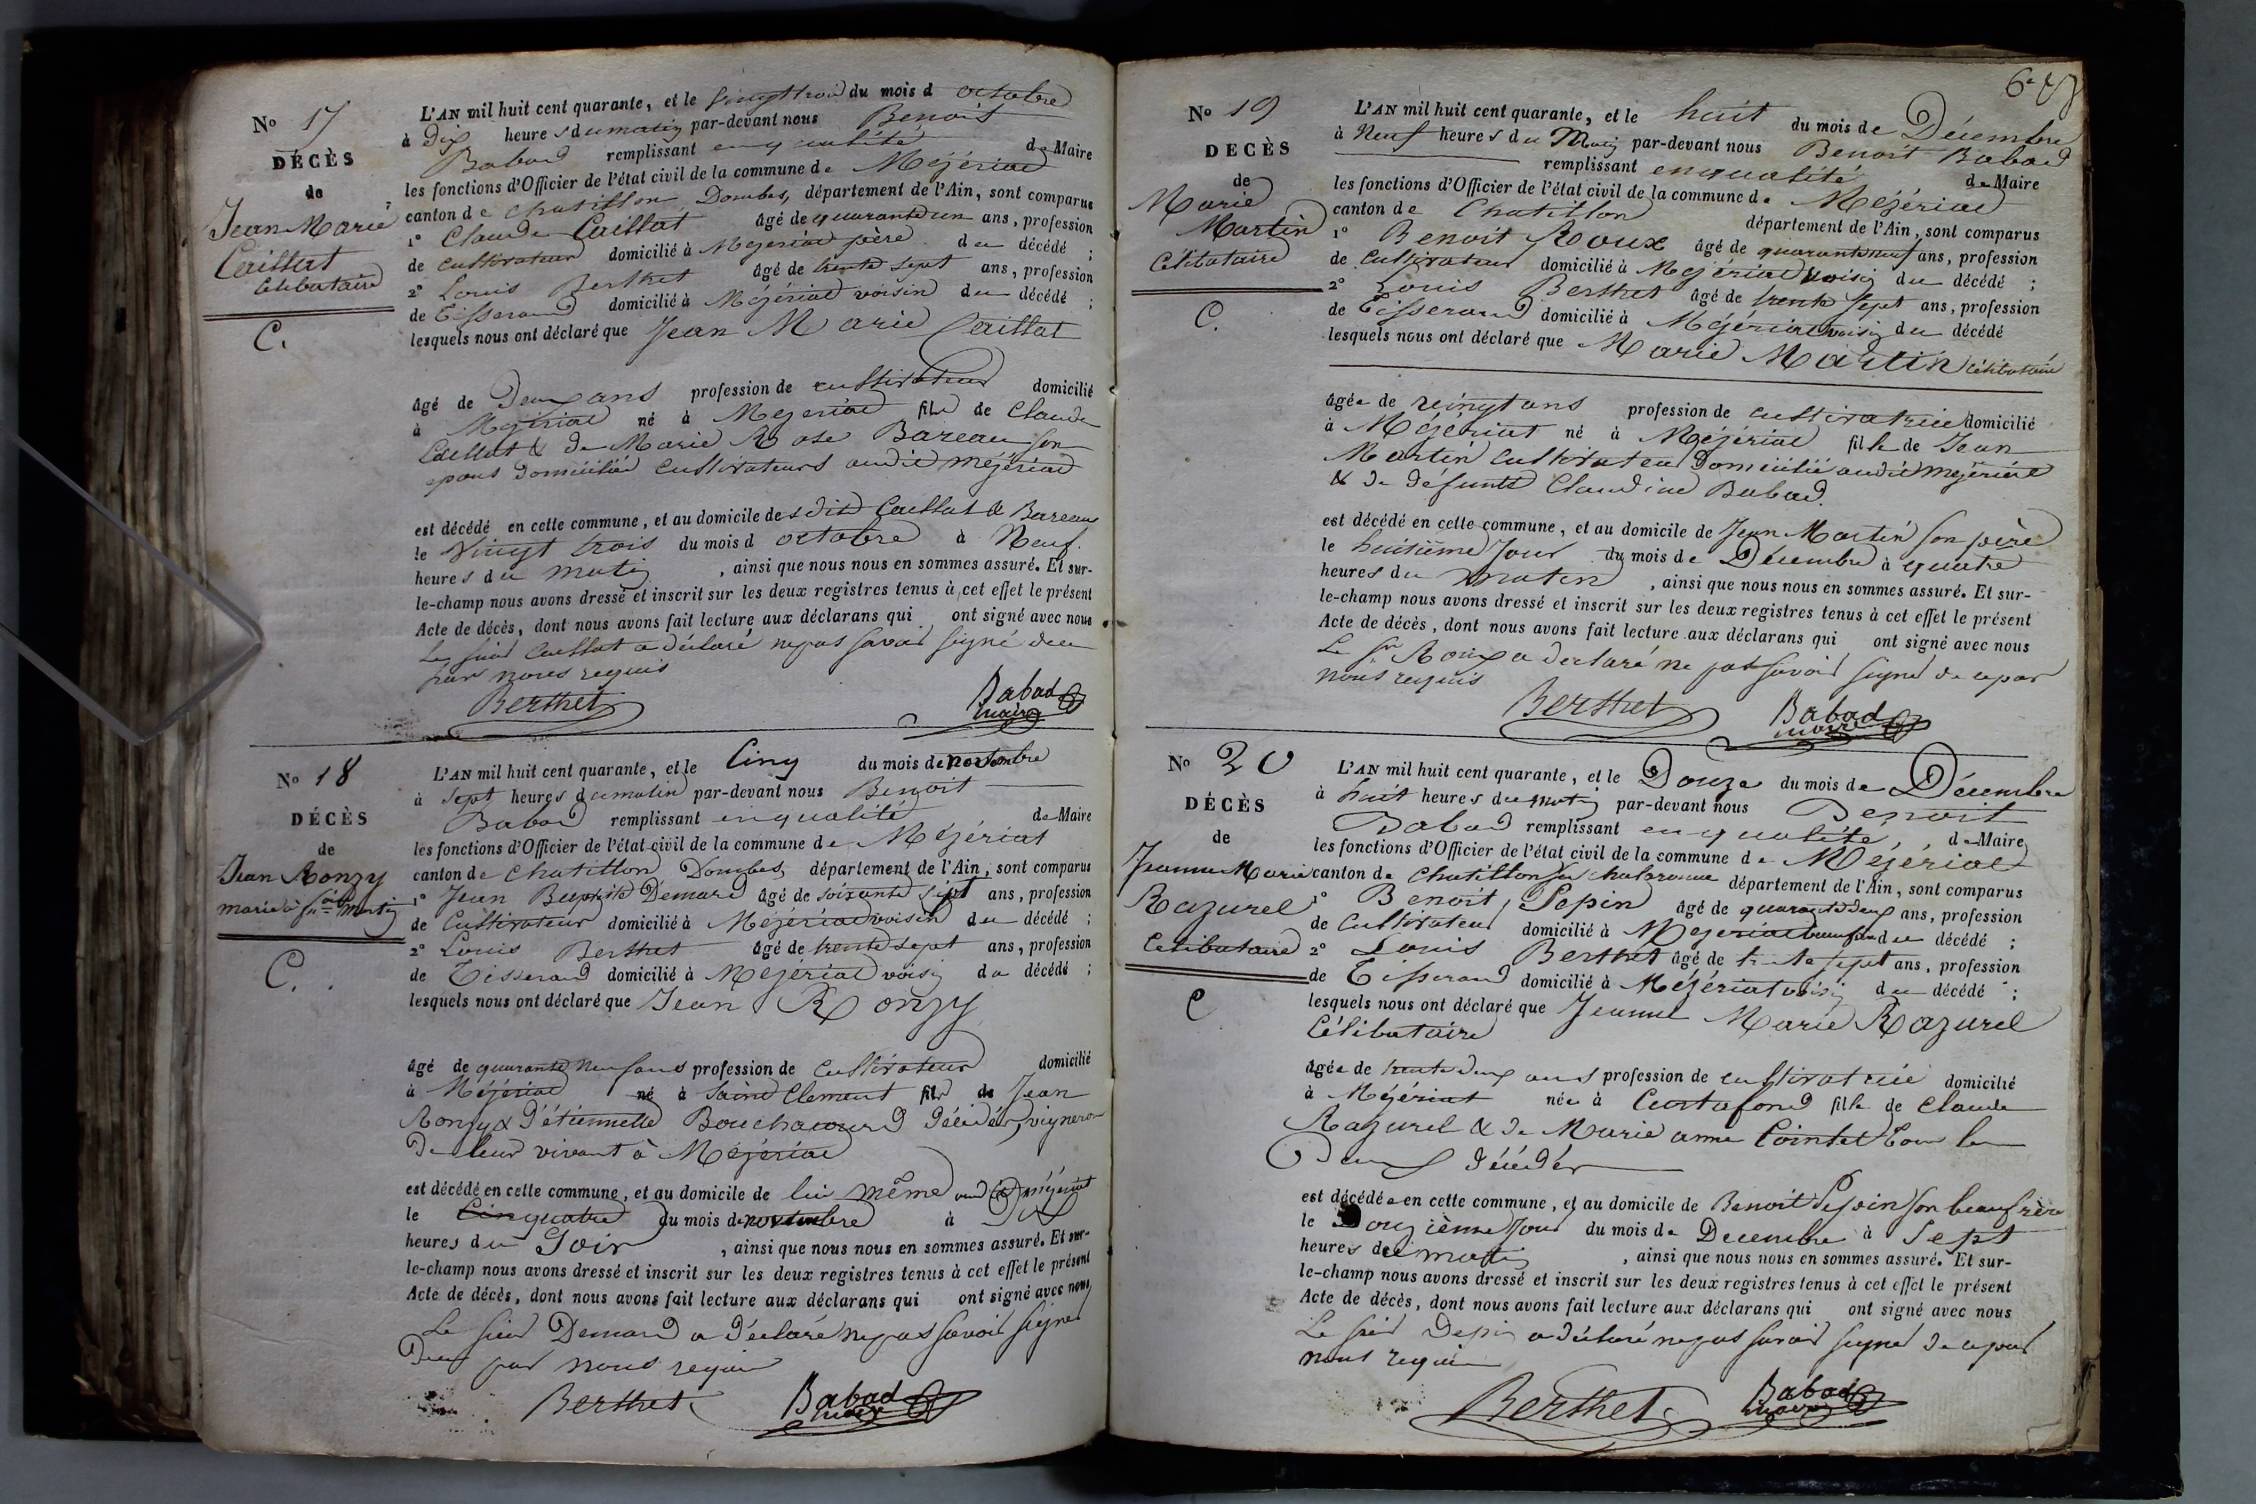 No 17
DÉCÈS
de
Jean Marie
Caillat
Celibataire
C.
L'AN mil huit cent quarante, et le vingt trois du mois d octobre
à Dix heures du matin par-devant nous Benoit
Babad remplissant en qualité de Maire
les fonctions d'Officier de l'état civil de la commune de Mézériat
canton de Chatillon Dombes, département de l'Ain, sont comparus
1° Claude Caillat âgé de quarante un ans, profession
de cultivateur domicilié à Mézériat père du décédé ;
2° Louis Berthet âgé de trente sept ans, profession
de Tisserand domicilié à Mézériat voisin du décédé ;
lesquels nous ont déclaré que Jean Marie Caillat
âgé de Deux ans profession de cultivateur domicilié
à Mézériat né à Mézériat fils de Claude
Caillat & de Marie Rose Bareau son
epous domicilié cultivateurs audit Mézériat
est décédé en cette commune, et au domicile des dits Caillat & Bareau
le vingt trois du mois d octobre à Neuf
heures du matin, ainsi que nous nous en sommes assuré. Et sur-
le-champ nous avons dressé et inscrit sur les deux registres tenus à cet effet le présent
Acte de décès, dont nous avons fait lecture aux déclarans qui ont signé avec nous
Le sieur Caillat a déclaré ne pas savoir signé de ce
par nous requis
Berthet
Babad
maire
No 18
DÉCÈS
de
Jean Ronzy
marié à Martin
C.
L'AN mil huit cent quarante, et le Cinq du mois de novembre
à sept heures du matin par-devant nous Benoit
Babad remplissant en qualité de Maire
les fonctions d'Officier de l'état civil de la commune de Mézériat
canton de Chatillon Dombes département de l'Ain, sont comparus
1° Jean Baptiste Demard âgé de soixante sept ans, profession
de Cultivateur domicilié à Mézériat voisin du décédé ;
2° Louis Berthet âgé de trente sept ans, profession
de Tisserand domicilié à Mézériat voisin du décédé ;
lesquels nous ont déclaré que Jean Ronzy
âgé de quarante neuf ans profession de Cultivateur domicilié
à Mézériat né à Saint Clement fils de Jean
Ronzy & d'étiennette Bouchacourd décédés, vigneron
De leur vivant à Mézériat
est décédé en cette commune, et au domicile de lui même audit Mézériat
le Cinq quatre du mois de novembre à Dix
heures du Soir, ainsi que nous nous en sommes assuré. Et sur-
le-champ nous avons dressé et inscrit sur les deux registres tenus à cet effet le présent
Acte de décès, dont nous avons fait lecture aux déclarans qui ont signé avec nous
Le sieur Demard a déclaré ne pas savoir signer
De ce par nous requis
Berthet
Babad
maire
No 19
DECÈS
de
Marie
Martin
Célibataire
C.
L'AN mil huit cent quarante, et le huit du mois de Décembre
à Neuf heures du Matin par-devant nous Benoit Babad
remplissant en qualité de Maire
les fonctions d'Officier de l'état civil de la commune de Mézériat
canton de Chatillon département de l'Ain, sont comparus
1° Benoit Roux âgé de quarante neuf ans, profession
de Cultivateur domicilié à Mézériat voisin du décédé ;
2° Louis Berthet âgé de trente sept ans, profession
de Tisserand domicilié à Mézériat voisin du décédé
lesquels nous ont déclaré que Marie Martin célibataire
âgée de vingt ans profession de cultivatrice domicilié
à Mézériat né à Mézériat fille de Jean
Martin cultivateur Domicilié audit Mézériat
& de défunte Claudine Babad
est décédé en cette commune, et au domicile de Jean Martin son père
le huitième Jour du mois de Décembre à quatre
heures du matin, ainsi que nous nous en sommes assuré. Et sur-
le-champ nous avons dressé et inscrit sur les deux registres tenus à cet effet le présent
Acte de décès, dont nous avons fait lecture aux déclarans qui ont signé avec nous
Le Sr Roux a déclaré ne pas savoir signer de ce par
nous requis
Berthet
Babad
maire
No 20
DÉCÈS
de
Jeanne Marie
Razurel
Celibataire
C
L'AN mil huit cent quarante, et le Douze du mois de Décembre
à huit heures du matin par-devant nous Benoit
Babad remplissant en qualité de Maire
les fonctions d'Officier de l'état civil de la commune de Mézériat
canton de Chatillon sur Chalaronne département de l'Ain, sont comparus
1° Benoit Pepin âgé de quarante deux ans, profession
de Cultivateur domicilié à Mézériat beaufrere du décédé ;
2° Louis Berthet âgé de trente sept ans, profession
de Tisserand domicilié à Mézériat voisin du décédé ;
lesquels nous ont déclaré que Jeanne Marie Razurel
Célibataire
âgée de trente deux ans profession de cultivatrice domicilié
à Mézériat née à Curtafond fille de Claude
Razurel & de Marie anne Cointet Tous les
Deux décédés
est décédée en cette commune, et au domicile de Benoit Pepin son beaufrère
le Douzième Jour du mois de Decembre à Sept
heures du matin, ainsi que nous nous en sommes assuré. Et sur-
le-champ nous avons dressé et inscrit sur les deux registres tenus à cet effet le présent
Acte de décès, dont nous avons fait lecture aux déclarans qui ont signé avec nous
Le sieur Pepin a déclaré ne pas savoir signer de ce par
nous requis
Berthet
Babad
maire